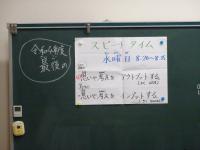 令和4年度
最後の
スピーチタイム
水曜日 8:20~8:25
思いや考えを アウトプットする
思いや考えを インプットする